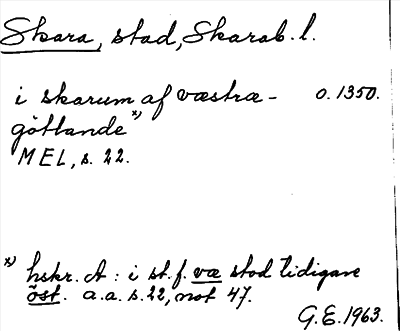 Skara, stad, Skarab. l.
i skarum af væstra- o. 1350.
götlande x)
MEL, s. 22.
x) hskr. A : i st. f. væ stod tidigare
öst. a.a. s. 22, not 47.
G.E. 1963.